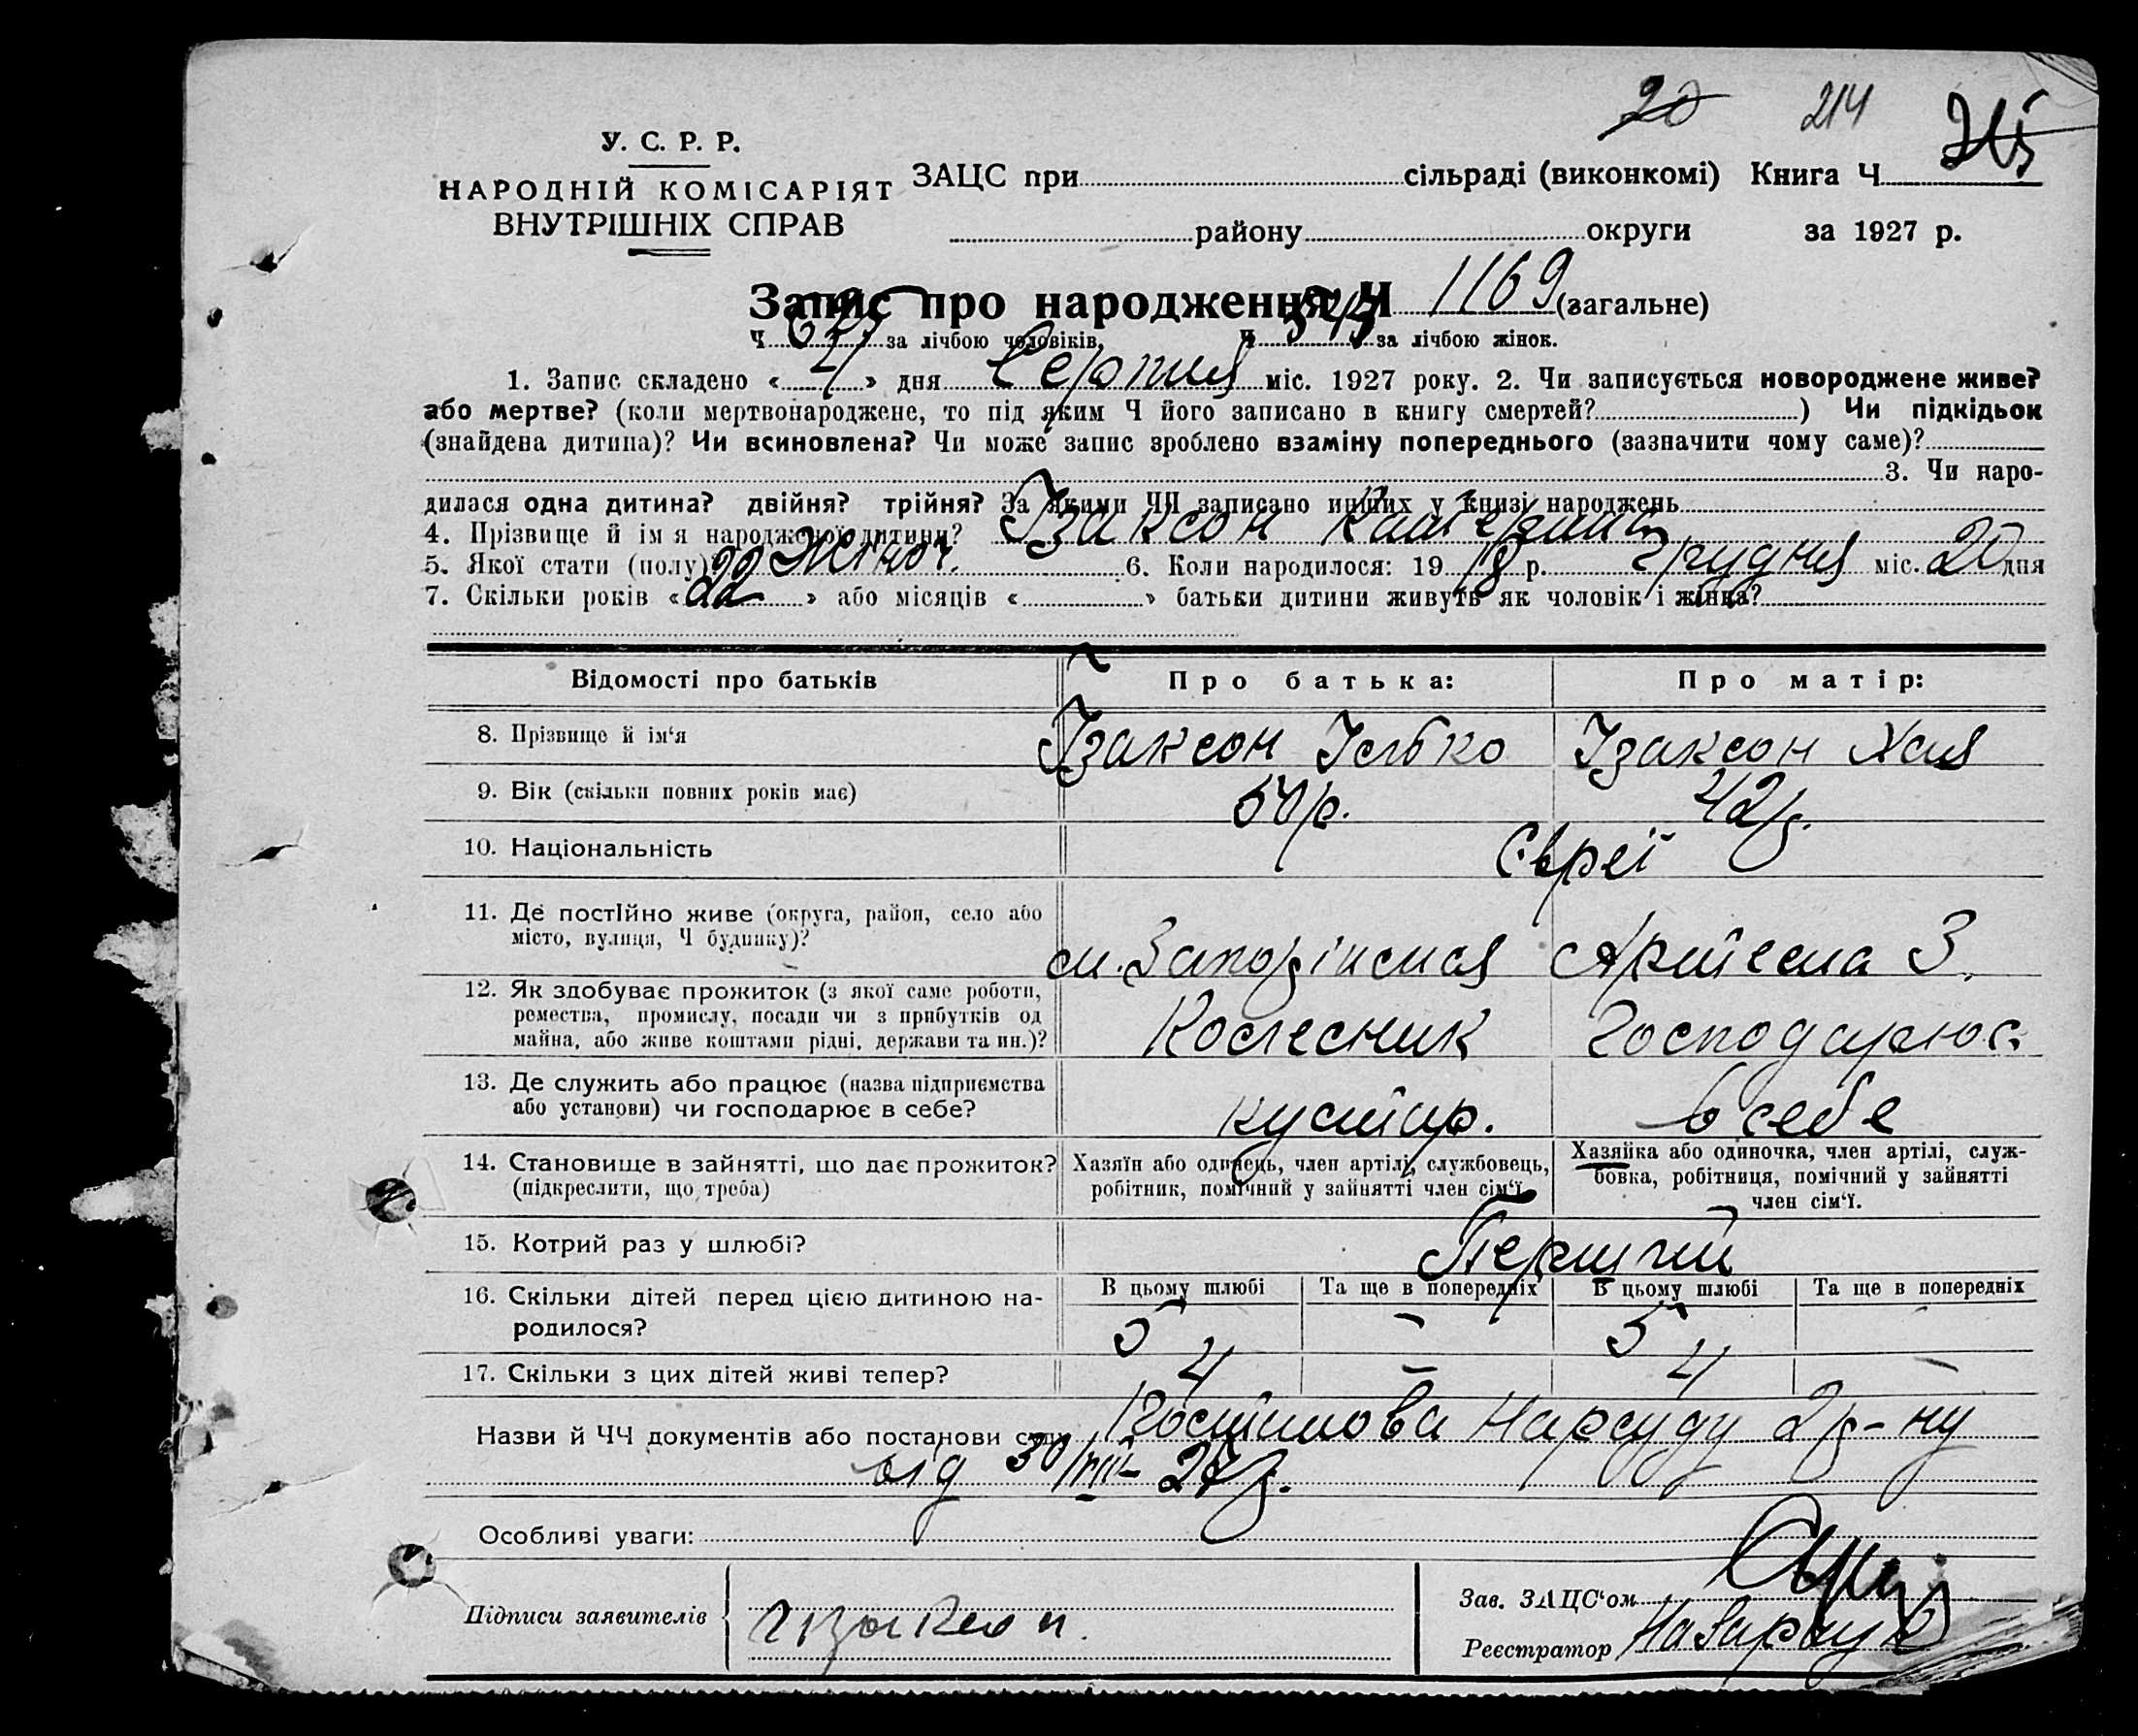 20 214
У. С. Р. Р.
НАРОДНІЙ КОМІСАРІЯТ
ВНУТРІШНІХ СПРАВ
ЗАЦС при сільраді (виконкомі) Книга Ч
району округи за 1927 р.
Запис про народження Ч 1169 (загальне)
Ч 624 за лічбою чоловіків, Ч 545 за лічбою жінок.
1. Запис складено « 4 » дня Серпня міс. 1927 року. 2. Чи записується новороджене живе?
або мертве? (коли мертвонароджене, то під яким Ч його записано в книгу смертей? ) Чи підкідьок
(знайдена дитина)? Чи всиновлена? Чи може запис зроблено взаміну попереднього (зазначити чому саме)?
3. Чи наро-
дилася одна дитина? двійня? трійня? За якими ЧЧ записано инших у книзі народжень
4. Прізвище й ім я народженої дитини? Ізаксон Катерина
5. Якої стати (полу)? Жіноч. 6. Коли народилося: 19 18 р. Грудня міс. 20 дня
7. Скільки років « 22 » або місяців « » батьки дитини живуть як чоловік і жінка?
Відомості про батьків Про батька: Про матір:
8. Прізвище й ім‘я Ізаксон Ісько Ізаксон Хая
9. Вік (скільки повних років має) 50 р. 42 р.
10. Національність Євреї
11. Де постійно живе (округа, район, село або
місто, вулиця, Ч будинку)? м. Запоріжжя Артема 3.
12. Як здобуває прожиток (з якої саме роботи,
ремества, промислу, посади чи з прибутків од
майна, або живе коштами рідні, держави та ин.)? Колесник Господарює
13. Де служить або працює (назва підприємства
або установи) чи господарює в себе? кустар. в себе
14. Становище в зайнятті, що дає прожиток?
(підкреслити, що треба)
Хазяїн або одинець, член артілі, службовець,
робітник, помічний у зайнятті член сім‘ї.
Хазяйка або одиночка, член артілі, служ-
бовка, робітниця, помічний у зайнятті
член сім‘ї.
15. Котрий раз у шлюбі? Перший
16. Скільки дітей перед цією дитиною на-
родилося?
В цьому шлюбі Та ще в попередніх В цьому шлюбі Та ще в попередніх
5 - 5 -
17. Скільки з цих дітей живі тепер? 4 - 4 -
Назви й ЧЧ документів або постанови суду Постанова Нарсуду 2 р-ну
від 30/VII- 27 р.
Особливі уваги:
Підписи заявителів Ізаксон.
Зав. ЗАЦС‘ом
Реєстратор